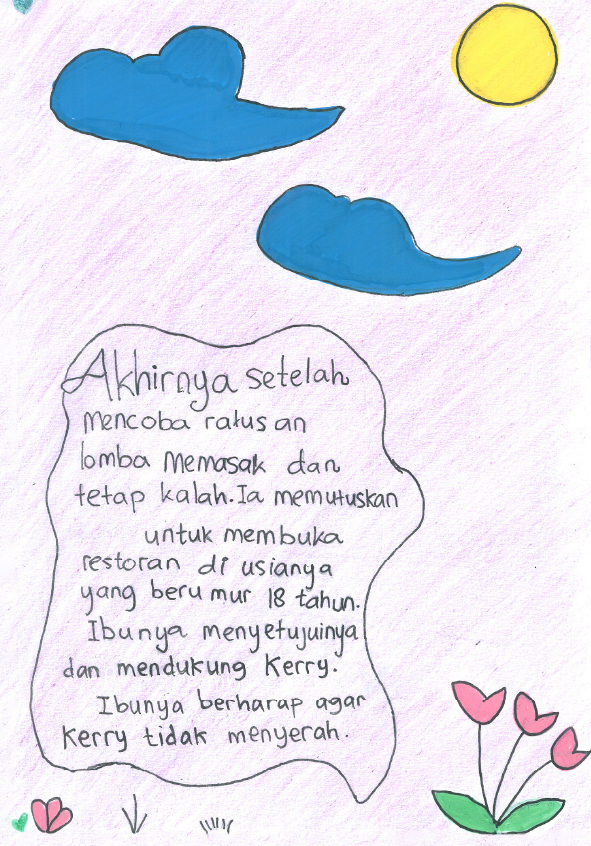 Akhirnya setelah
mencoba ratusan
lomba memasak dan
tetap kalah. Ia memutuskan
untuk membuka
restoran di usianya
yang berumur 18 tahun.
Ibunya menyetujuinya
dan mendukung Kerry.
Ibunya berharap agar
Kerry tidak menyerah.